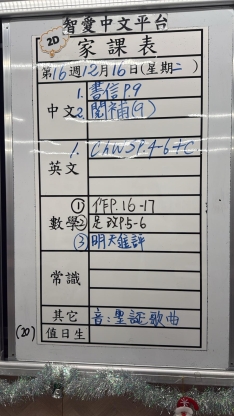 智愛中文平台
2D
家課表
第16週12月16日(星期二)
中文
1. 書信P.9
2. 閱補(9)
英文
1. CHWSP.4-6+C
數學
① 作P.16-17
② 足改P.5-6
③ 明天進評
常識
其它
音:聖誕歌曲
(20)
值日生